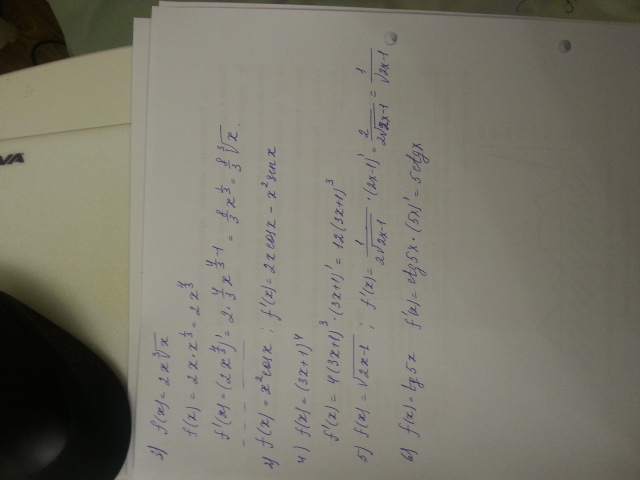 VA
3) f(x) = 2x∛x
f(x) = 2x·x^{1/3} = 2x^{4/3}
f'(x) = (2x^{4/3})' = 2·4/3 x^{4/3 - 1} = 8/3 x^{1/3} = 8/3 ∛x.
2) f(x) = x² cosx ; f'(x) = 2x cosx - x² sinx
4) f(x) = (3x+1)⁴
f'(x) = 4(3x+1)³·(3x+1)' = 12(3x+1)³
5) f(x) = √(2x-1) ; f'(x) = 1/(2√(2x-1))·(2x-1)' = 2/(2√(2x-1)) = 1/√(2x-1)
6) f(x) = tg5x f'(x) = ctg5x·(5x)' = 5ctgx